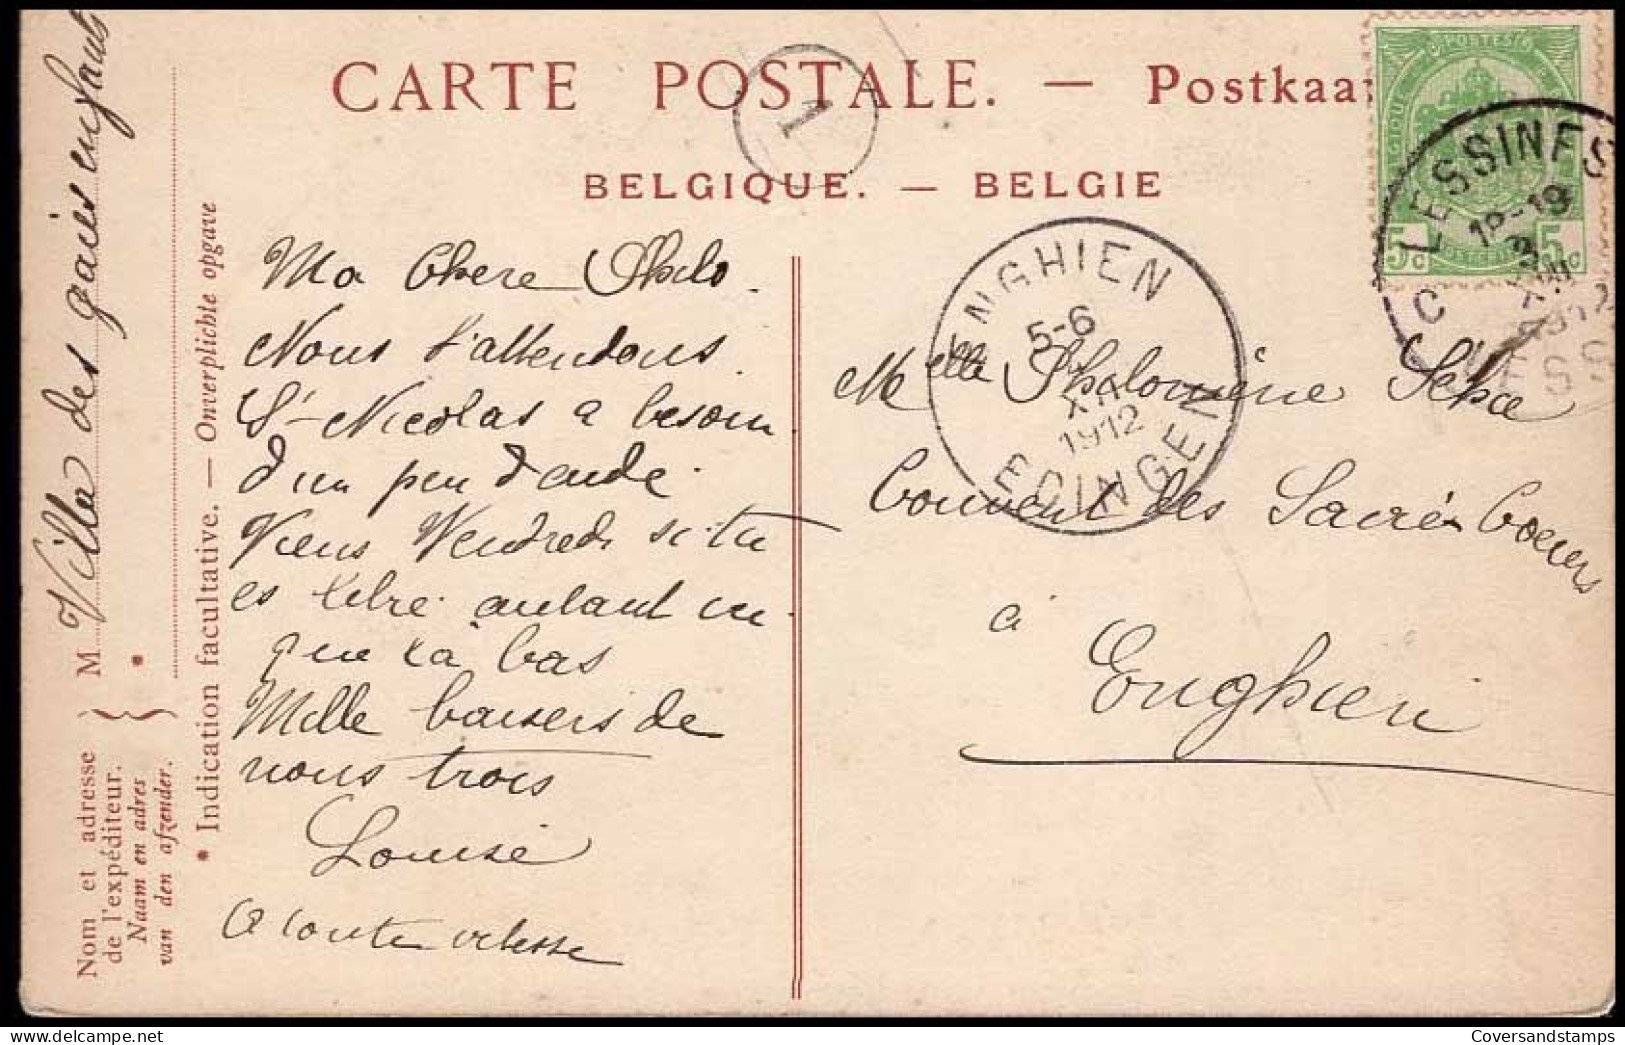 CARTE POSTALE. — Postkaa
BELGIQUE. — BELGIE
Villa des gaies enfants
M
Nom et adresse
de l'expéditeur.
Naam en adres
van den afzender.
* Indication facultative. — Onverplichte opgave
Ma Chere Philo.
Nous t'attendons.
St-Nicolas a besoin
d'un peu d'aide.
Viens Vendredi si tu
es libre. autant ici
que là bas
Mille baisers de
nous trois
Louise
A toute vitesse
1
ENGHIEN
5-6
XII
1912
EDINGEN
POSTES
BELGIQUE
5c 5c
LESSINES
18-19
XII
1912
C
Melle Philomène
Couvent des Sacrés Coeurs
à
Enghien
Coversandstamps